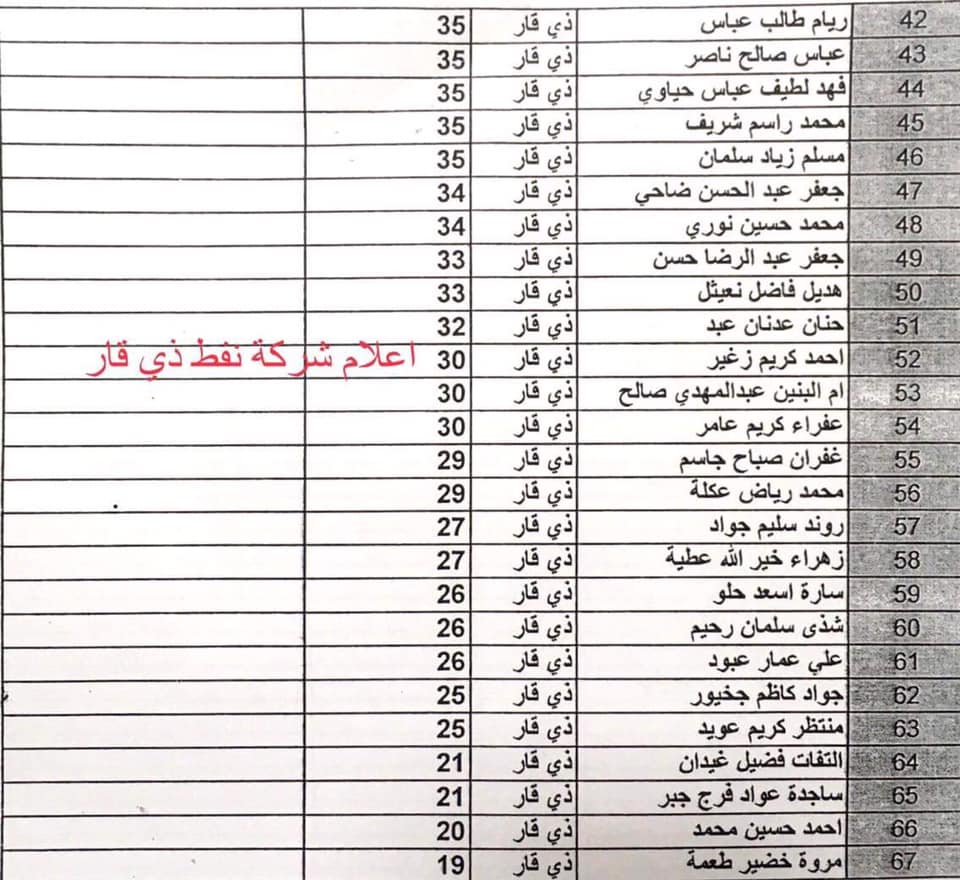 42 ريام طالب عباس ذي قار 35
43 عباس صالح ناصر ذي قار 35
44 فهد لطيف عباس حياوي ذي قار 35
45 محمد راسم شريف ذي قار 35
46 مسلم زياد سلمان ذي قار 35
47 جعفر عبد الحسن ضاحي ذي قار 34
48 محمد حسين نوري ذي قار 34
49 جعفر عبد الرضا حسن ذي قار 33
50 هديل فاضل نعيثل ذي قار 33
51 حنان عدنان عبد ذي قار 32
52 احمد كريم زغير ذي قار 30 اعلام شركة نفط ذي قار
53 ام البنين عبدالمهدي صالح ذي قار 30
54 عفراء كريم عامر ذي قار 30
55 غفران صباح جاسم ذي قار 29
56 محمد رياض عكلة ذي قار 29
57 روند سليم جواد ذي قار 27
58 زهراء خير الله عطية ذي قار 27
59 سارة اسعد حلو ذي قار 26
60 شذى سلمان رحيم ذي قار 26
61 علي عمار عبود ذي قار 26
62 جواد كاظم جخيور ذي قار 25
63 منتظر كريم عويد ذي قار 25
64 التفات فضيل غيدان ذي قار 21
65 ساجدة عواد فرج جبر ذي قار 21
66 احمد حسين محمد ذي قار 20
67 مروة خضير طعمة ذي قار 19